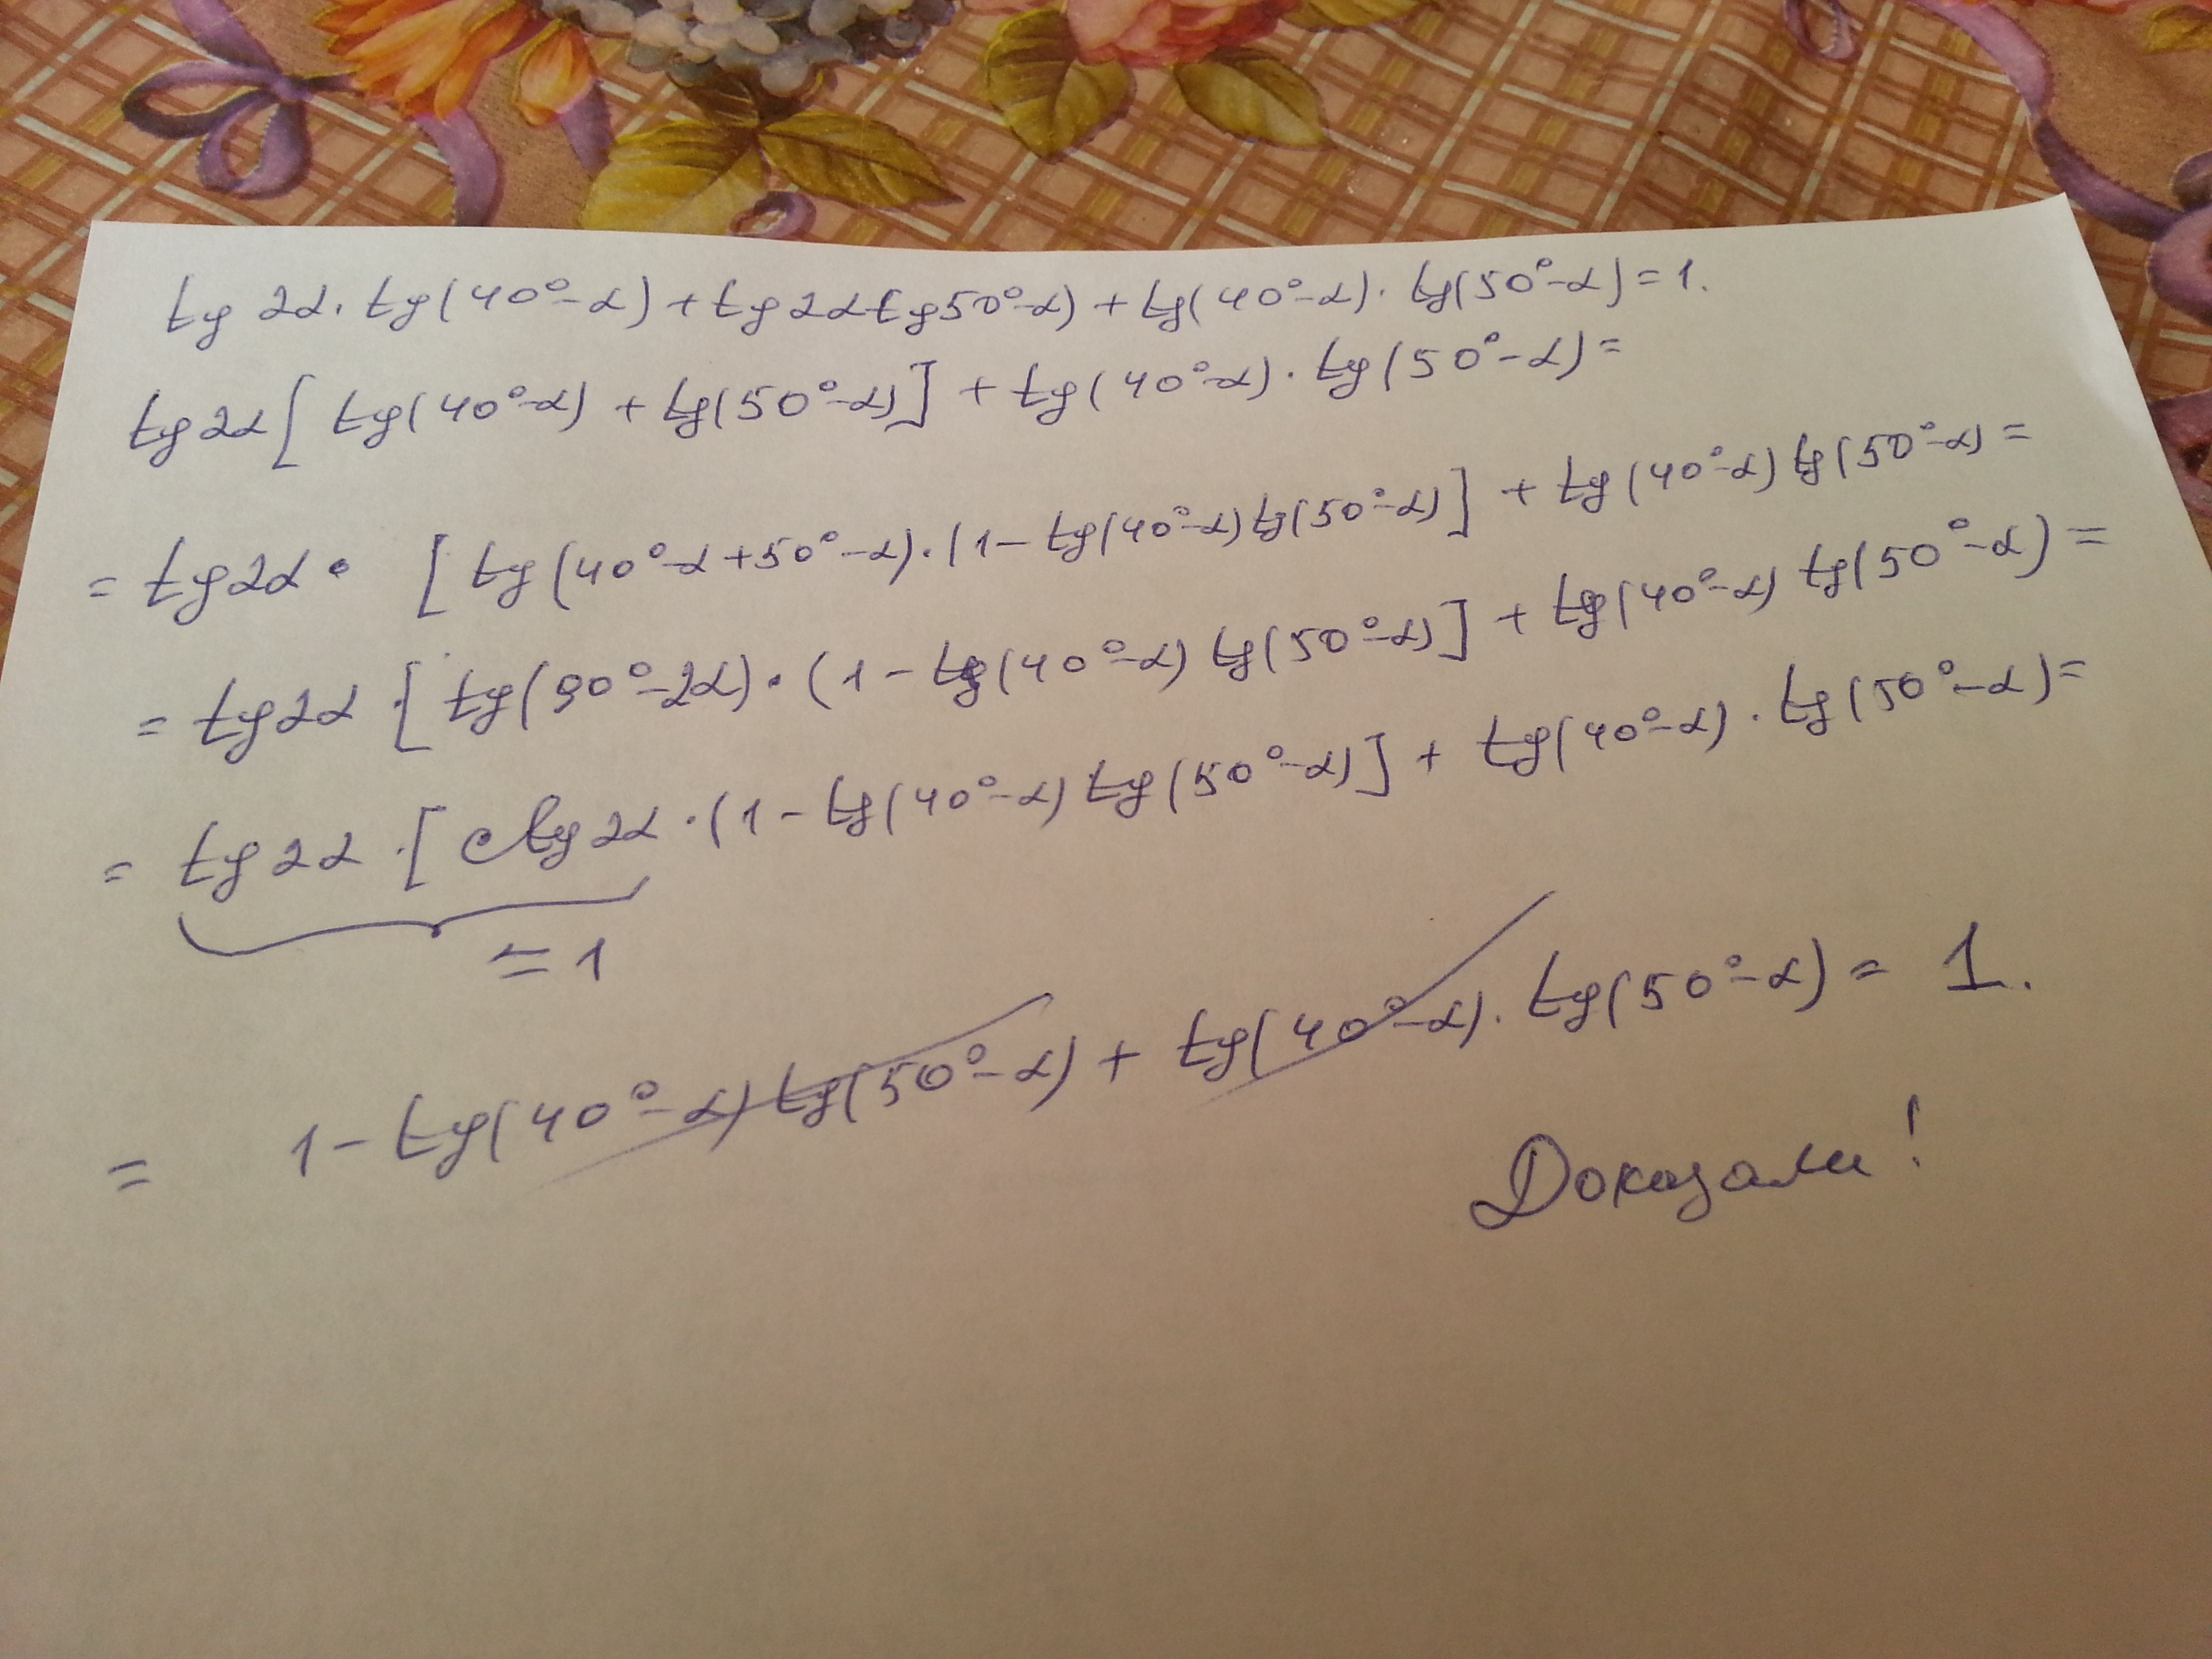 tg 2α · tg(40°-α) + tg2αtg50°-α) + tg(40°-α) · tg(50°-α) = 1.
tg2α[tg(40°-α) + tg(50°-α)] + tg(40°-α) · tg(50°-α) =
= tg2α · [tg(40°-α+50°-α) · (1-tg(40°-α)tg(50°-α)] + tg(40°-α)tg(50°-α) =
= tg2α · [tg(90°-2α) · (1-tg(40°-α)tg(50°-α)] + tg(40°-α) tg(50°-α) =
= tg2α · [ctg2α · (1-tg(40°-α)tg(50°-α)] + tg(40°-α) · tg(50°-α) =
= 1
= 1-tg(40°-α)tg(50°-α) + tg(40°-α) · tg(50°-α) = 1.
Доказали!